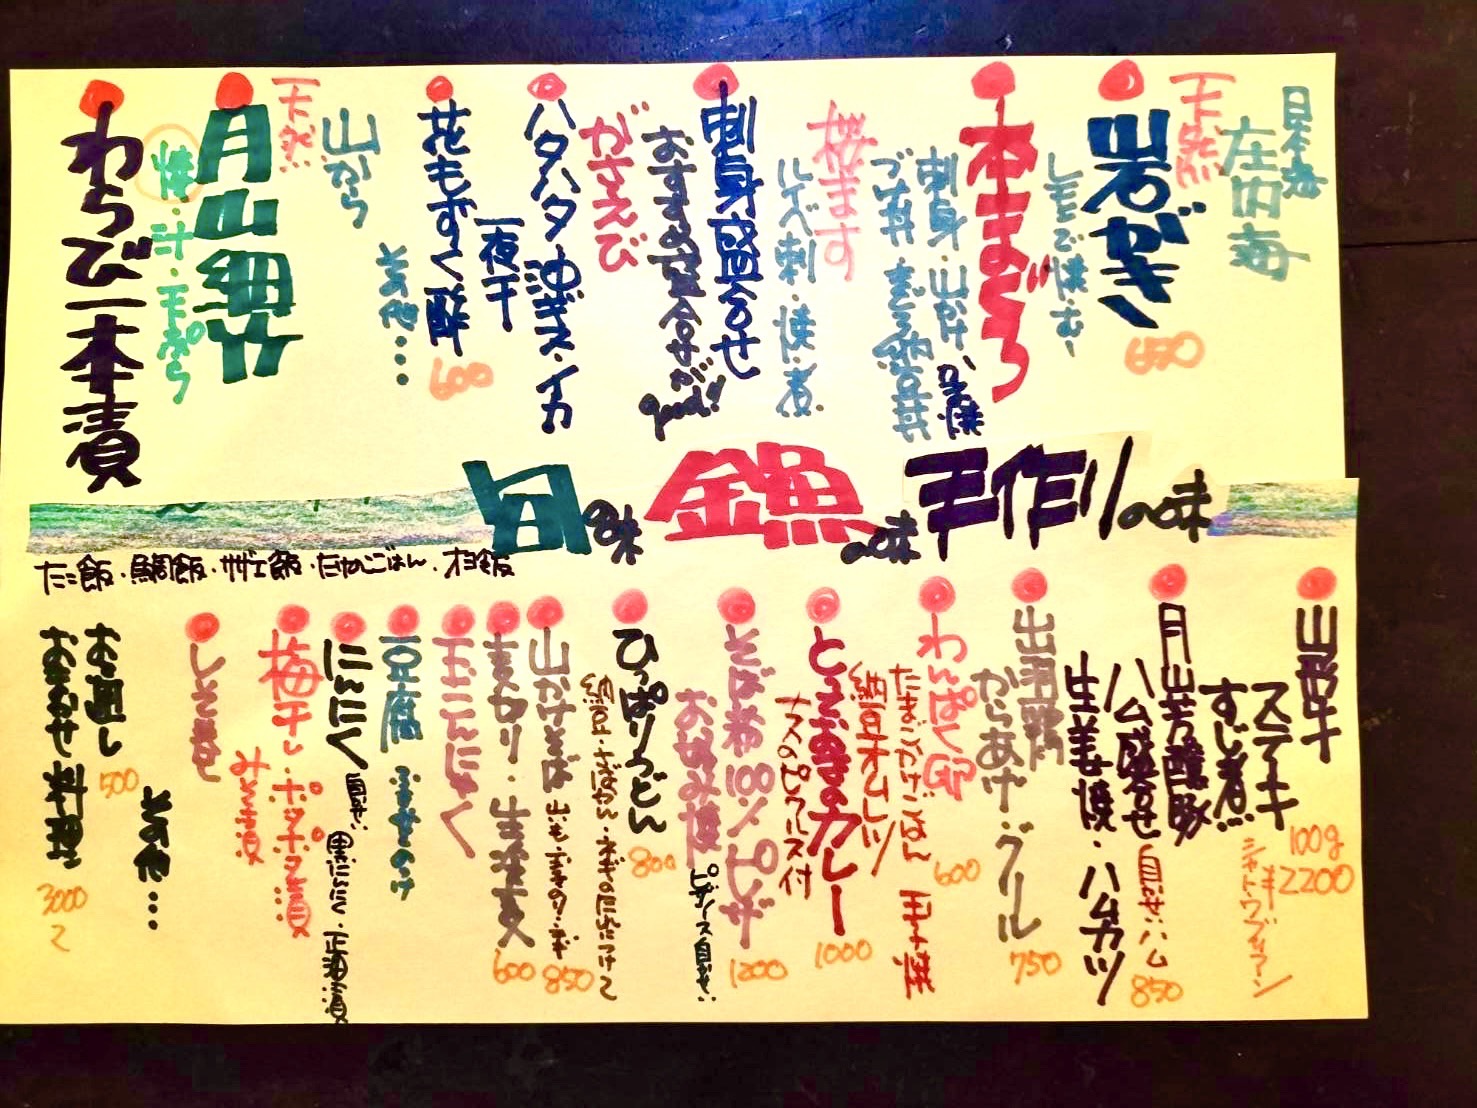 日本海
庄内海
天然
岩がき
650
レモンで
本まぐろ
刺身・山かけ
桜ます
ルイベ刺・焼・煮
刺身盛合せ
おすすめ盛合せが
good!
がさえび
ハタハタ 油あげ・イカ
一夜干
花もずく酢
600
その他…
山から
天然
月山細竹
焼・汁・天ぷら
わらび一本漬
旬の味
鮮魚の味
手作りの味
たこ飯・鯛飯・サザエ飯・たけのこごはん・
山形牛
ステーキ
100g
2200
シャトウブリアン
すじ煮
月山芳醸豚
ハム盛合せ 自家製ハム
生姜焼・ハムカツ
850
出羽鶏
からあげ・グリル
750
わんぱく卵
600
たまごかけごはん 玉子焼
納豆オムレツ
とっておきのカレー
1000
ナスのピクルス付
そば粉100%ピザ
1200
お好み焼 ピザソース自家製
ひっぱりうどん
800
山かけそば
850
麦切り・生蕎麦
600
玉こんにゃく
豆腐
にんにく 自家製 黒にんにく・正油漬
梅干し・ポタポタ漬
みそ漬
しそ巻
その他…
お通し
500
おまかせ料理
3000
～